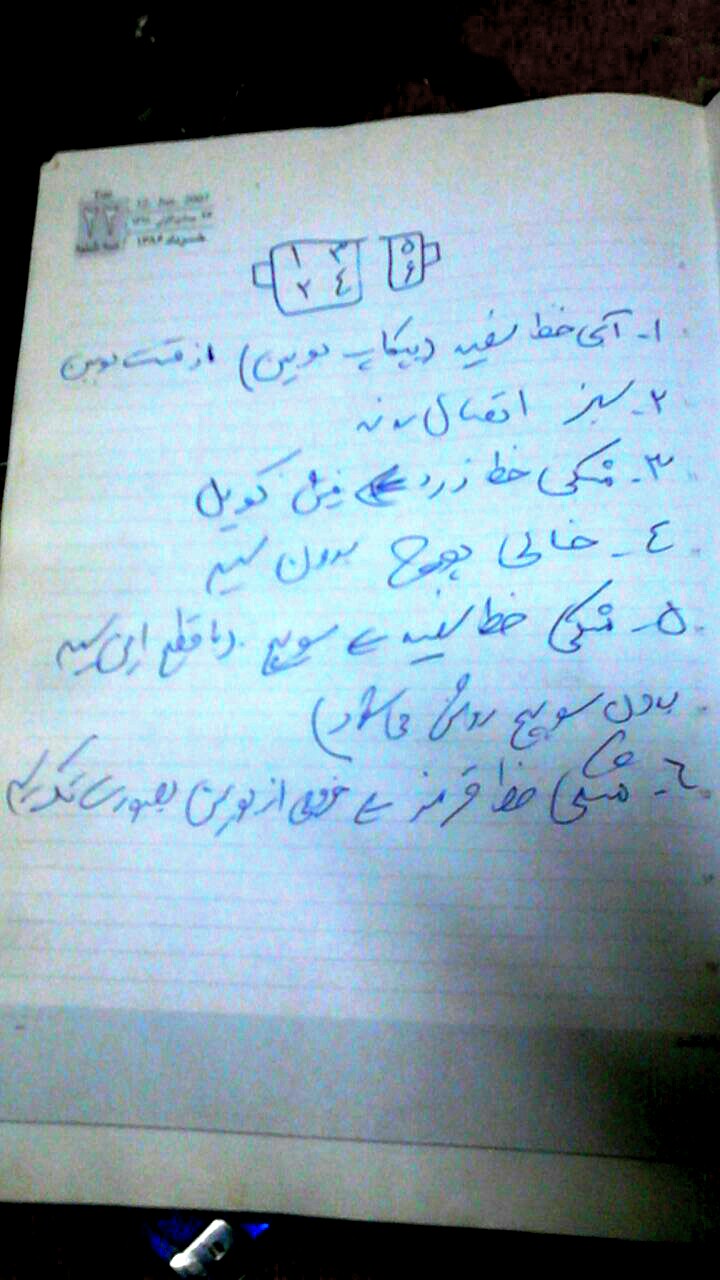 12. Jun. 2007
۲۲
خرداد ۱۳۸۶
۱ ۳ ۵
۲ ٤ ۶
۱- آبی خط سفید (پیکاپ بوبین) از قسمت بوبین
۲- سبز اتصال بدنه
۳- مشکی خط زرد کویل
٤- خالی پوچ بدون سیم
۵- مشکی خط سفید سویچ. (با قطع این سیم
بدون سویچ روشن می شود)
٦- مشکی خط قرمز خروجی از بوبین بصورت